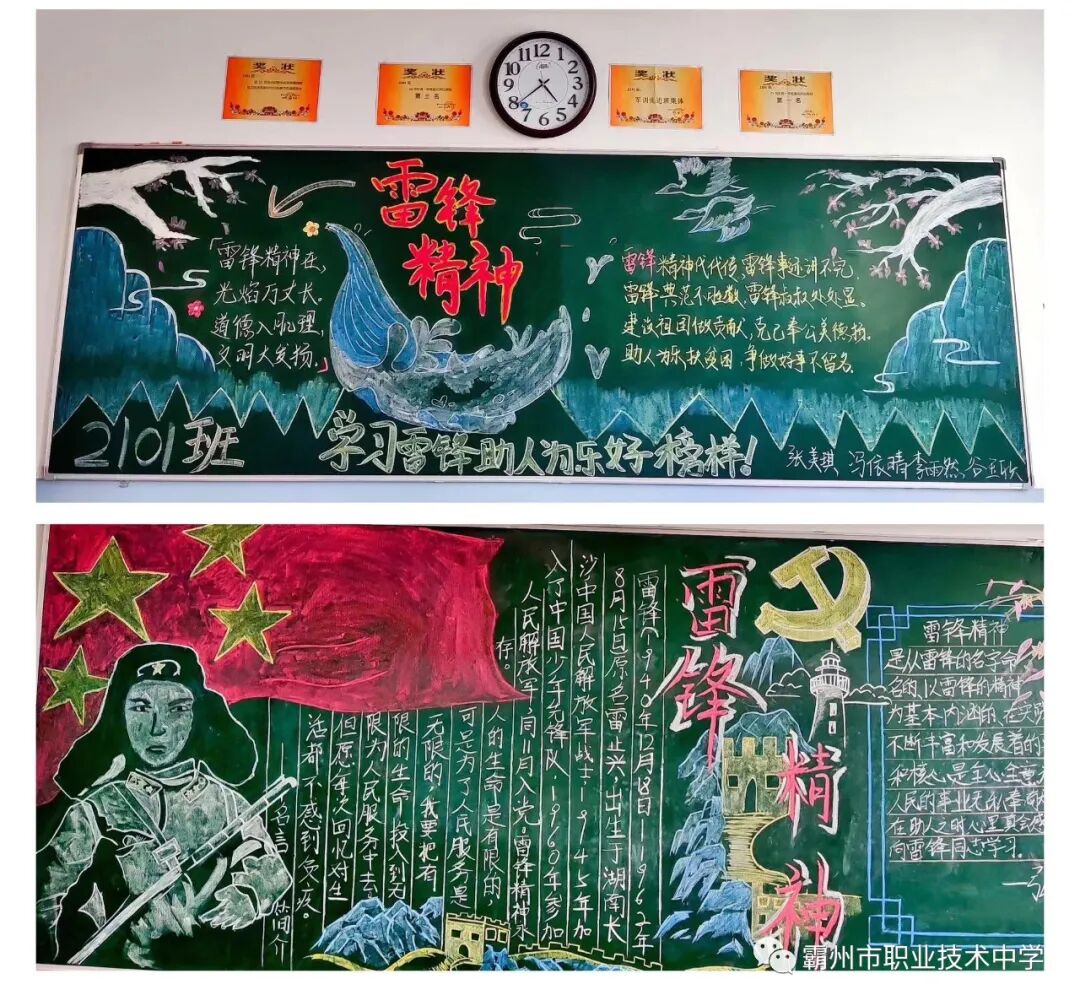 奖状
奖状
第三名
奖状
军训先进班集体
奖状
第一名
12 1 2 3 4 5 6 7 8 9 10 11
雷锋
精神
「雷锋精神在,
光焰万丈长。
道德入肌理,
文明大发扬。」
雷锋精神代代传,雷锋事迹讲不完。
雷锋典范不胜数,雷锋叔叔处处显。
建设祖国做贡献,克己奉公美德扬。
助人为乐扶贫困,争做好事不留名。
2101班
学习雷锋助人为乐好榜样!
张美琪 冯依晴 李雨然 谷亚欣
雷锋精神
雷锋(1940年12月18日—1962年
8月15日原名雷正兴,出生于湖南长
沙中国人民解放军战士,1945年加
入了中国少年先锋队,1960年参加
人民解放军,同11月入党。雷锋精神永
存。
人的生命是有限的,
可是为了人民服务是
无限的,我要把有
限的生命,投入到无
限为人民服务中去
但愿每次回忆,对生
活都不感到负疚。
——名言 简介
雷锋精神
是从雷锋的名字命
名的,以雷锋的精神
为基本内涵的,在实践
不断丰富和发展着的
和核心是全心全意
人民的事业无私奉献
在助人之时心里真会感
向雷锋同志学习。
霸州市职业技术中学